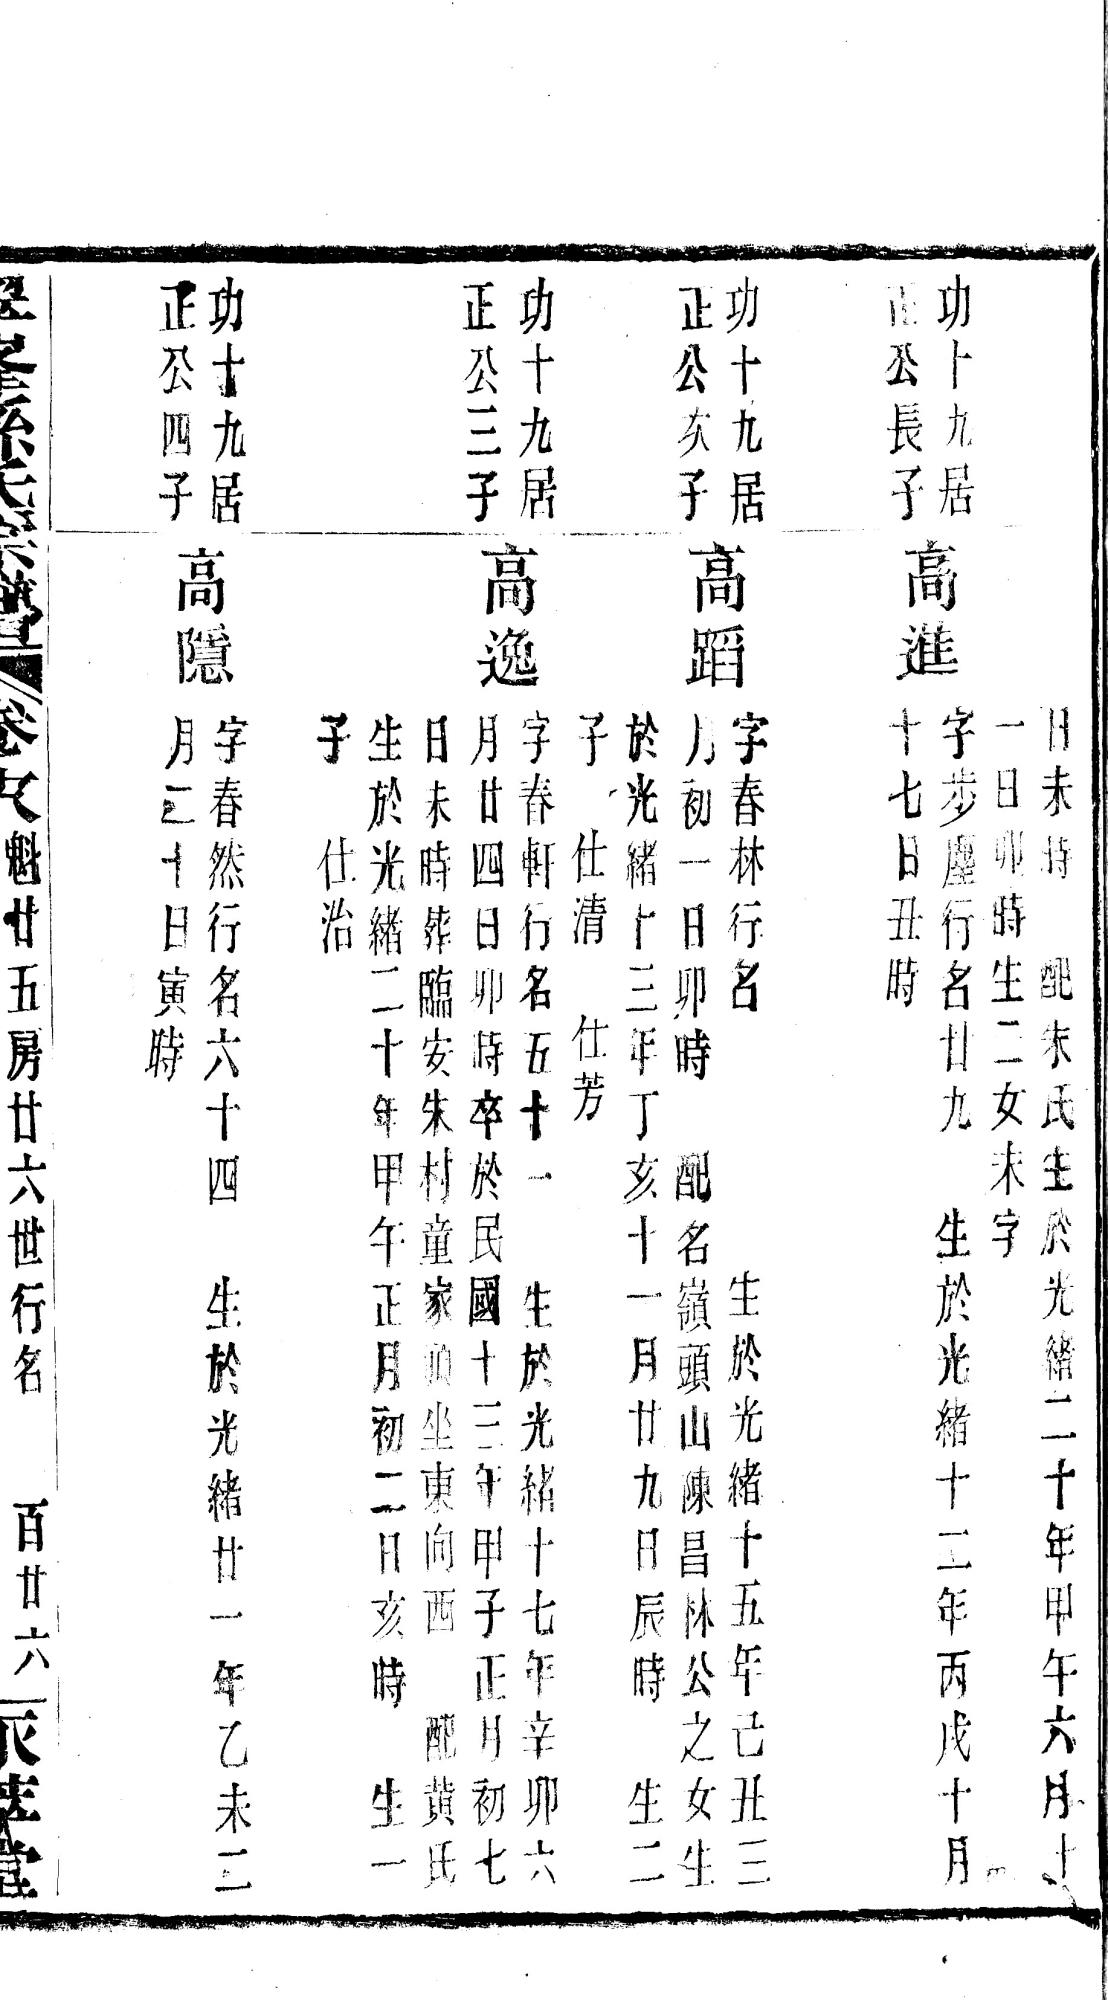 日未時　配朱氏生於光緒二十年甲午六月十
一日卯時生二女未字
功十九居
正公長子
高進
字步塵行名廿九　生於光緒十二年丙戌十月
十七日丑時
功十九居
正公次子
高蹈
字春林行名　生於光緒十五年己丑三
月初一日卯時　配名嶺頭山陳昌林公之女生
於光緒十三年丁亥十一月廿九日辰時　生二
子　仕清　仕芳
功十九居
正公三子
高逸
字春軒行名五十一　生於光緒十七年辛卯六
月廿四日卯時卒於民國十三年甲子正月初七
日未時葬臨安朱村童家坐東向西　配黄氏
生於光緒二十年甲午正月初二日亥時　生一
子　仕治
功十九居
正公四子
高隱
字春然行名六十四　生於光緒廿一年乙未二
月二十日寅時
峯孫氏宗譜　卷　魁廿五房廿六世行名　百廿六　堂